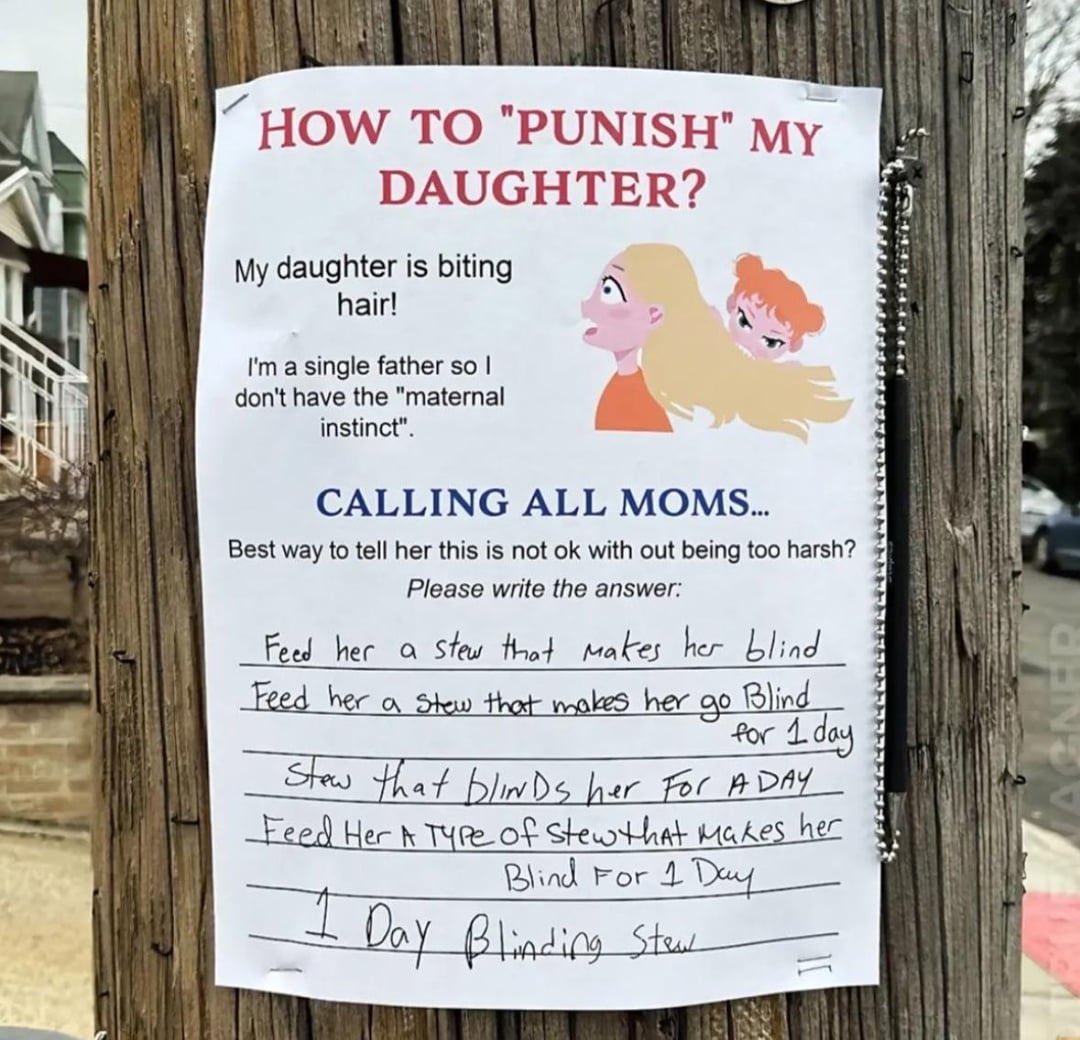 HOW TO "PUNISH" MY
DAUGHTER?
My daughter is biting
hair!
I'm a single father so I
don't have the "maternal
instinct".
CALLING ALL MOMS...
Best way to tell her this is not ok with out being too harsh?
Please write the answer:
Feed her a stew that makes her blind
Feed her a stew that makes her go Blind
for 1 day
Stew that blinds her For A DAY
Feed Her A TYPe of stew that makes her
Blind For 1 Day
1 Day Blinding Stew
AGNER